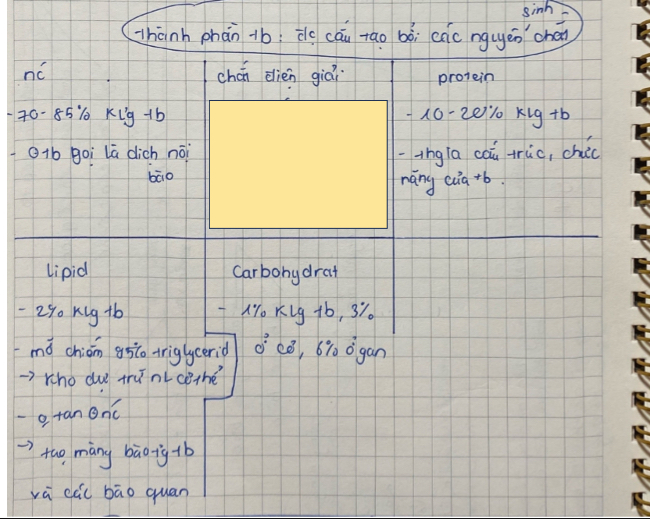 sinh -
Thành phần tb: đc cấu tạo bởi các nguyên chất
nc
- 70-85% KLg tb
- θ tb gọi là dịch nội
bào
chất điện giải
protein
- 10-20% KLg tb
- thgia cấu trúc, chức
năng của tb.
Lipid
- 2% KLg tb
- mỡ chiếm 95% triglycerid
→ kho dự trữ nL cơ thể
- tan θ nc
→ tạo màng bào tg tb
và các bào quan
Carbohydrat
- 1% KLg tb, 3%
ở cơ, 6% ở gan